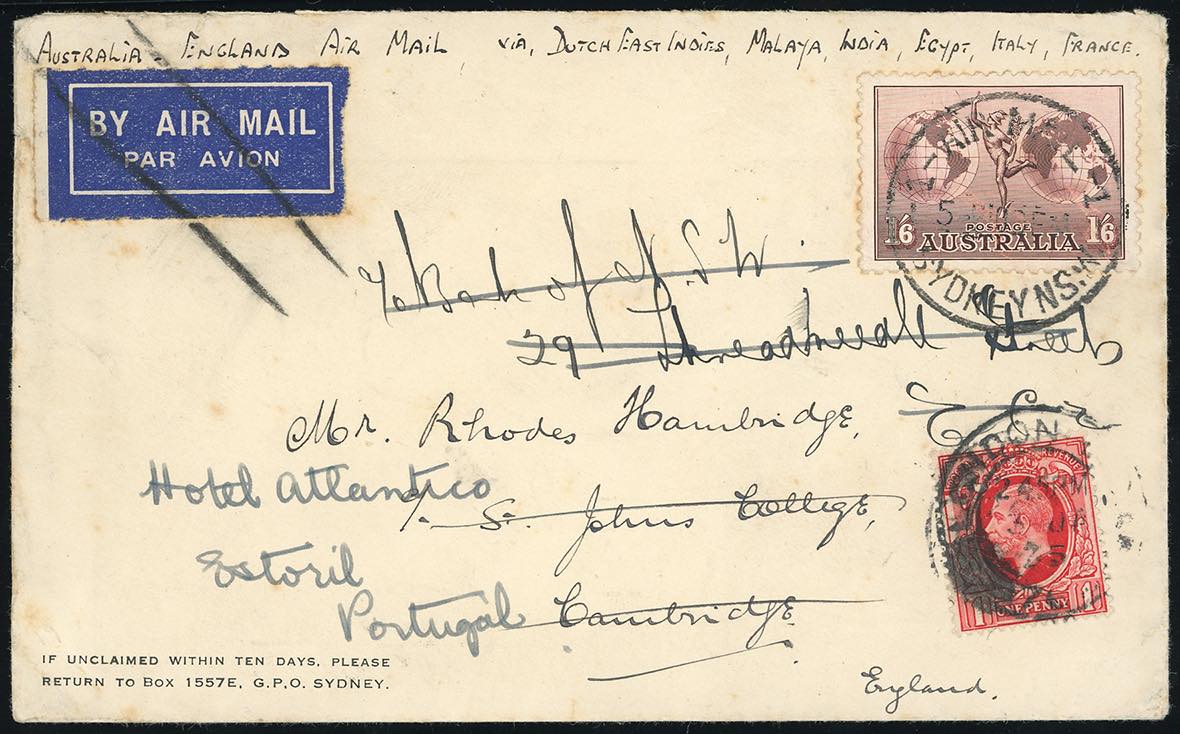 AUSTRALIA - ENGLAND AIR MAIL, VIA, DUTCH EAST INDIES, MALAYA, INDIA, EGYPT, ITALY, FRANCE.
BY AIR MAIL
PAR AVION
AIR MAIL
SYDNEY N.S.W
1/6 POSTAGE 1/6
AUSTRALIA
Bank of N.S.W.
29 Threadneedle Street
E.C.2
Mr. Rhodes Hambridge,
LONDON
REVENUE
2 45 PM
1 ONE PENNY 1
Hotel Atlantico
c/- St. Johns College,
Estoril
Portugal
Cambridge
IF UNCLAIMED WITHIN TEN DAYS, PLEASE
RETURN TO BOX 1557E, G.P.O. SYDNEY.
England.